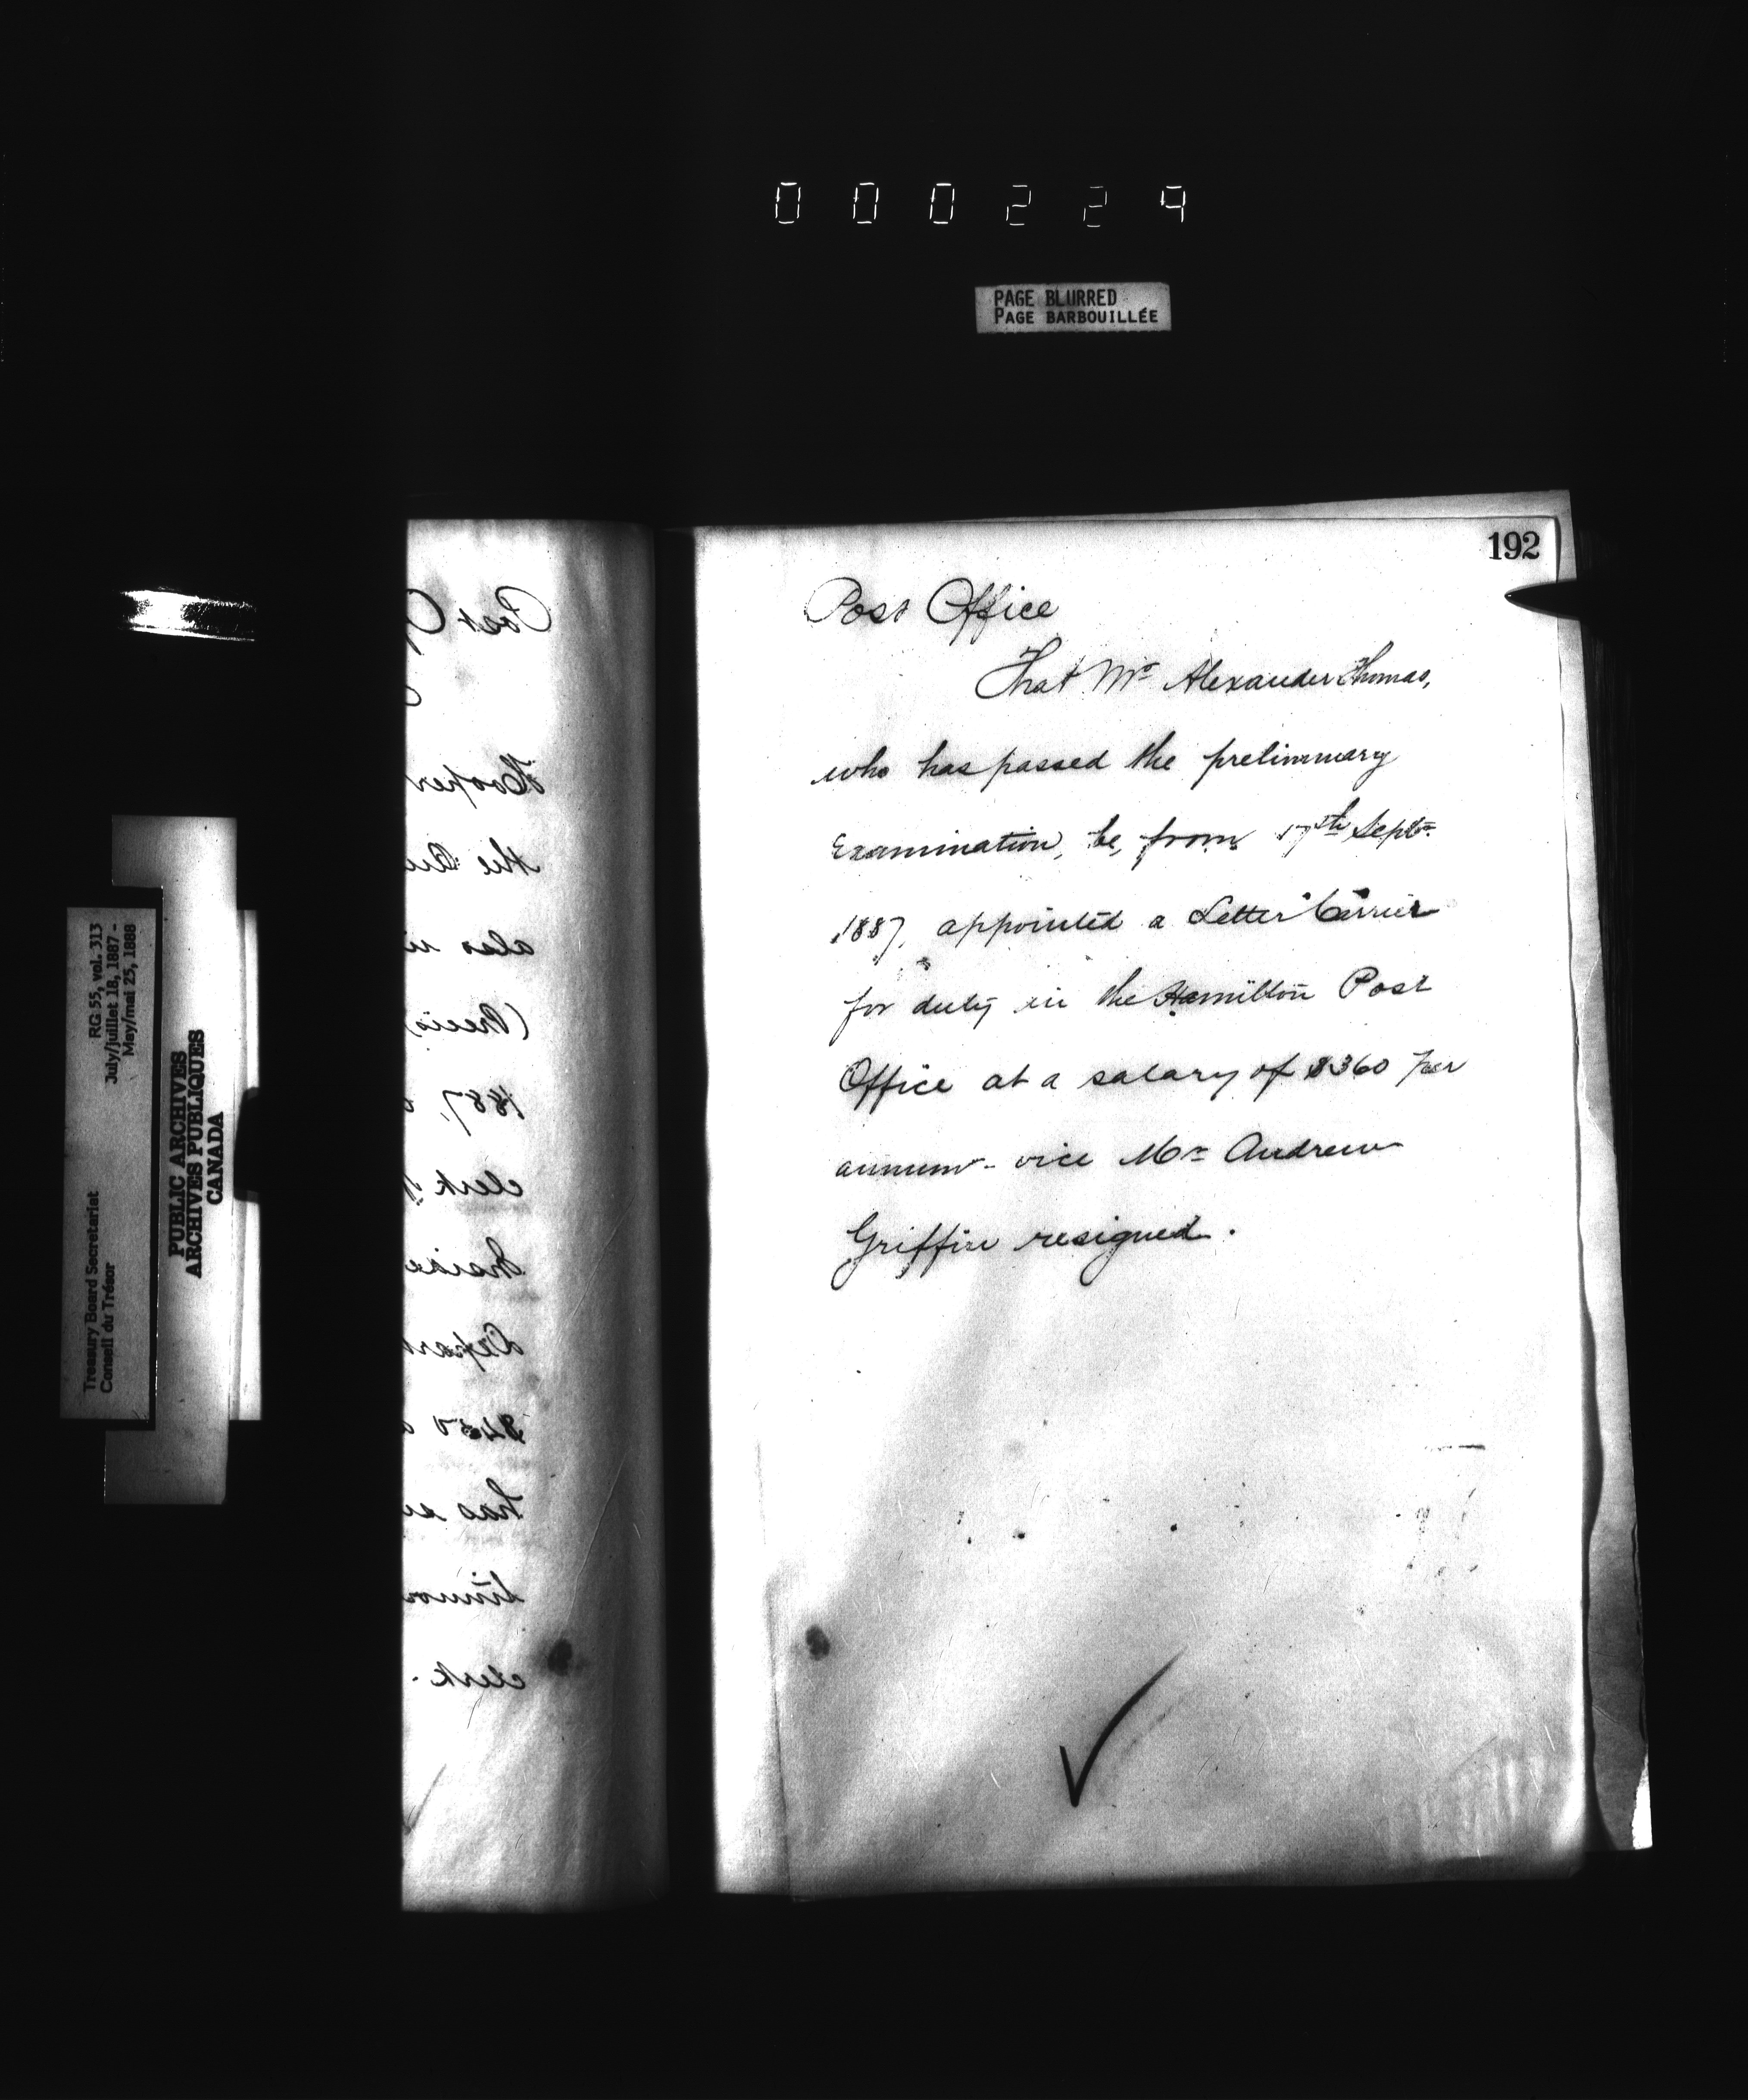 000229
PAGE BLURRED
PAGE BARBOUILLÉE
RG 55, vol. 313
July/juillet 18, 1887 -
May/mai 25, 1888
Treasury Board Secretariat
Conseil du Trésor
PUBLIC ARCHIVES
ARCHIVES PUBLIQUES
CANADA
192
Post Office
That Mr Alexander Thomas,
who has passed the preliminary
Examination, be, from 17th Septr
1887, appointed a Letter Carrier
for duty in the Hamilton Post
Office at a salary of $360 per
annum - vice Mr Andrew
Griffin resigned.
Post
Hooper
the
also
1887,
clerk
has
clerk.